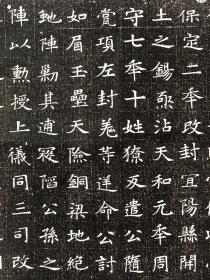 保定二年改封宜陽縣開
土之錫沾天和元年周
守七年十姓獠反遣公隨
党項左封羌等詳命公討
如眉玉壘天險銅梁地絕
馳陣勦其逋寇公孫之
陣以勳授上儀同三司改